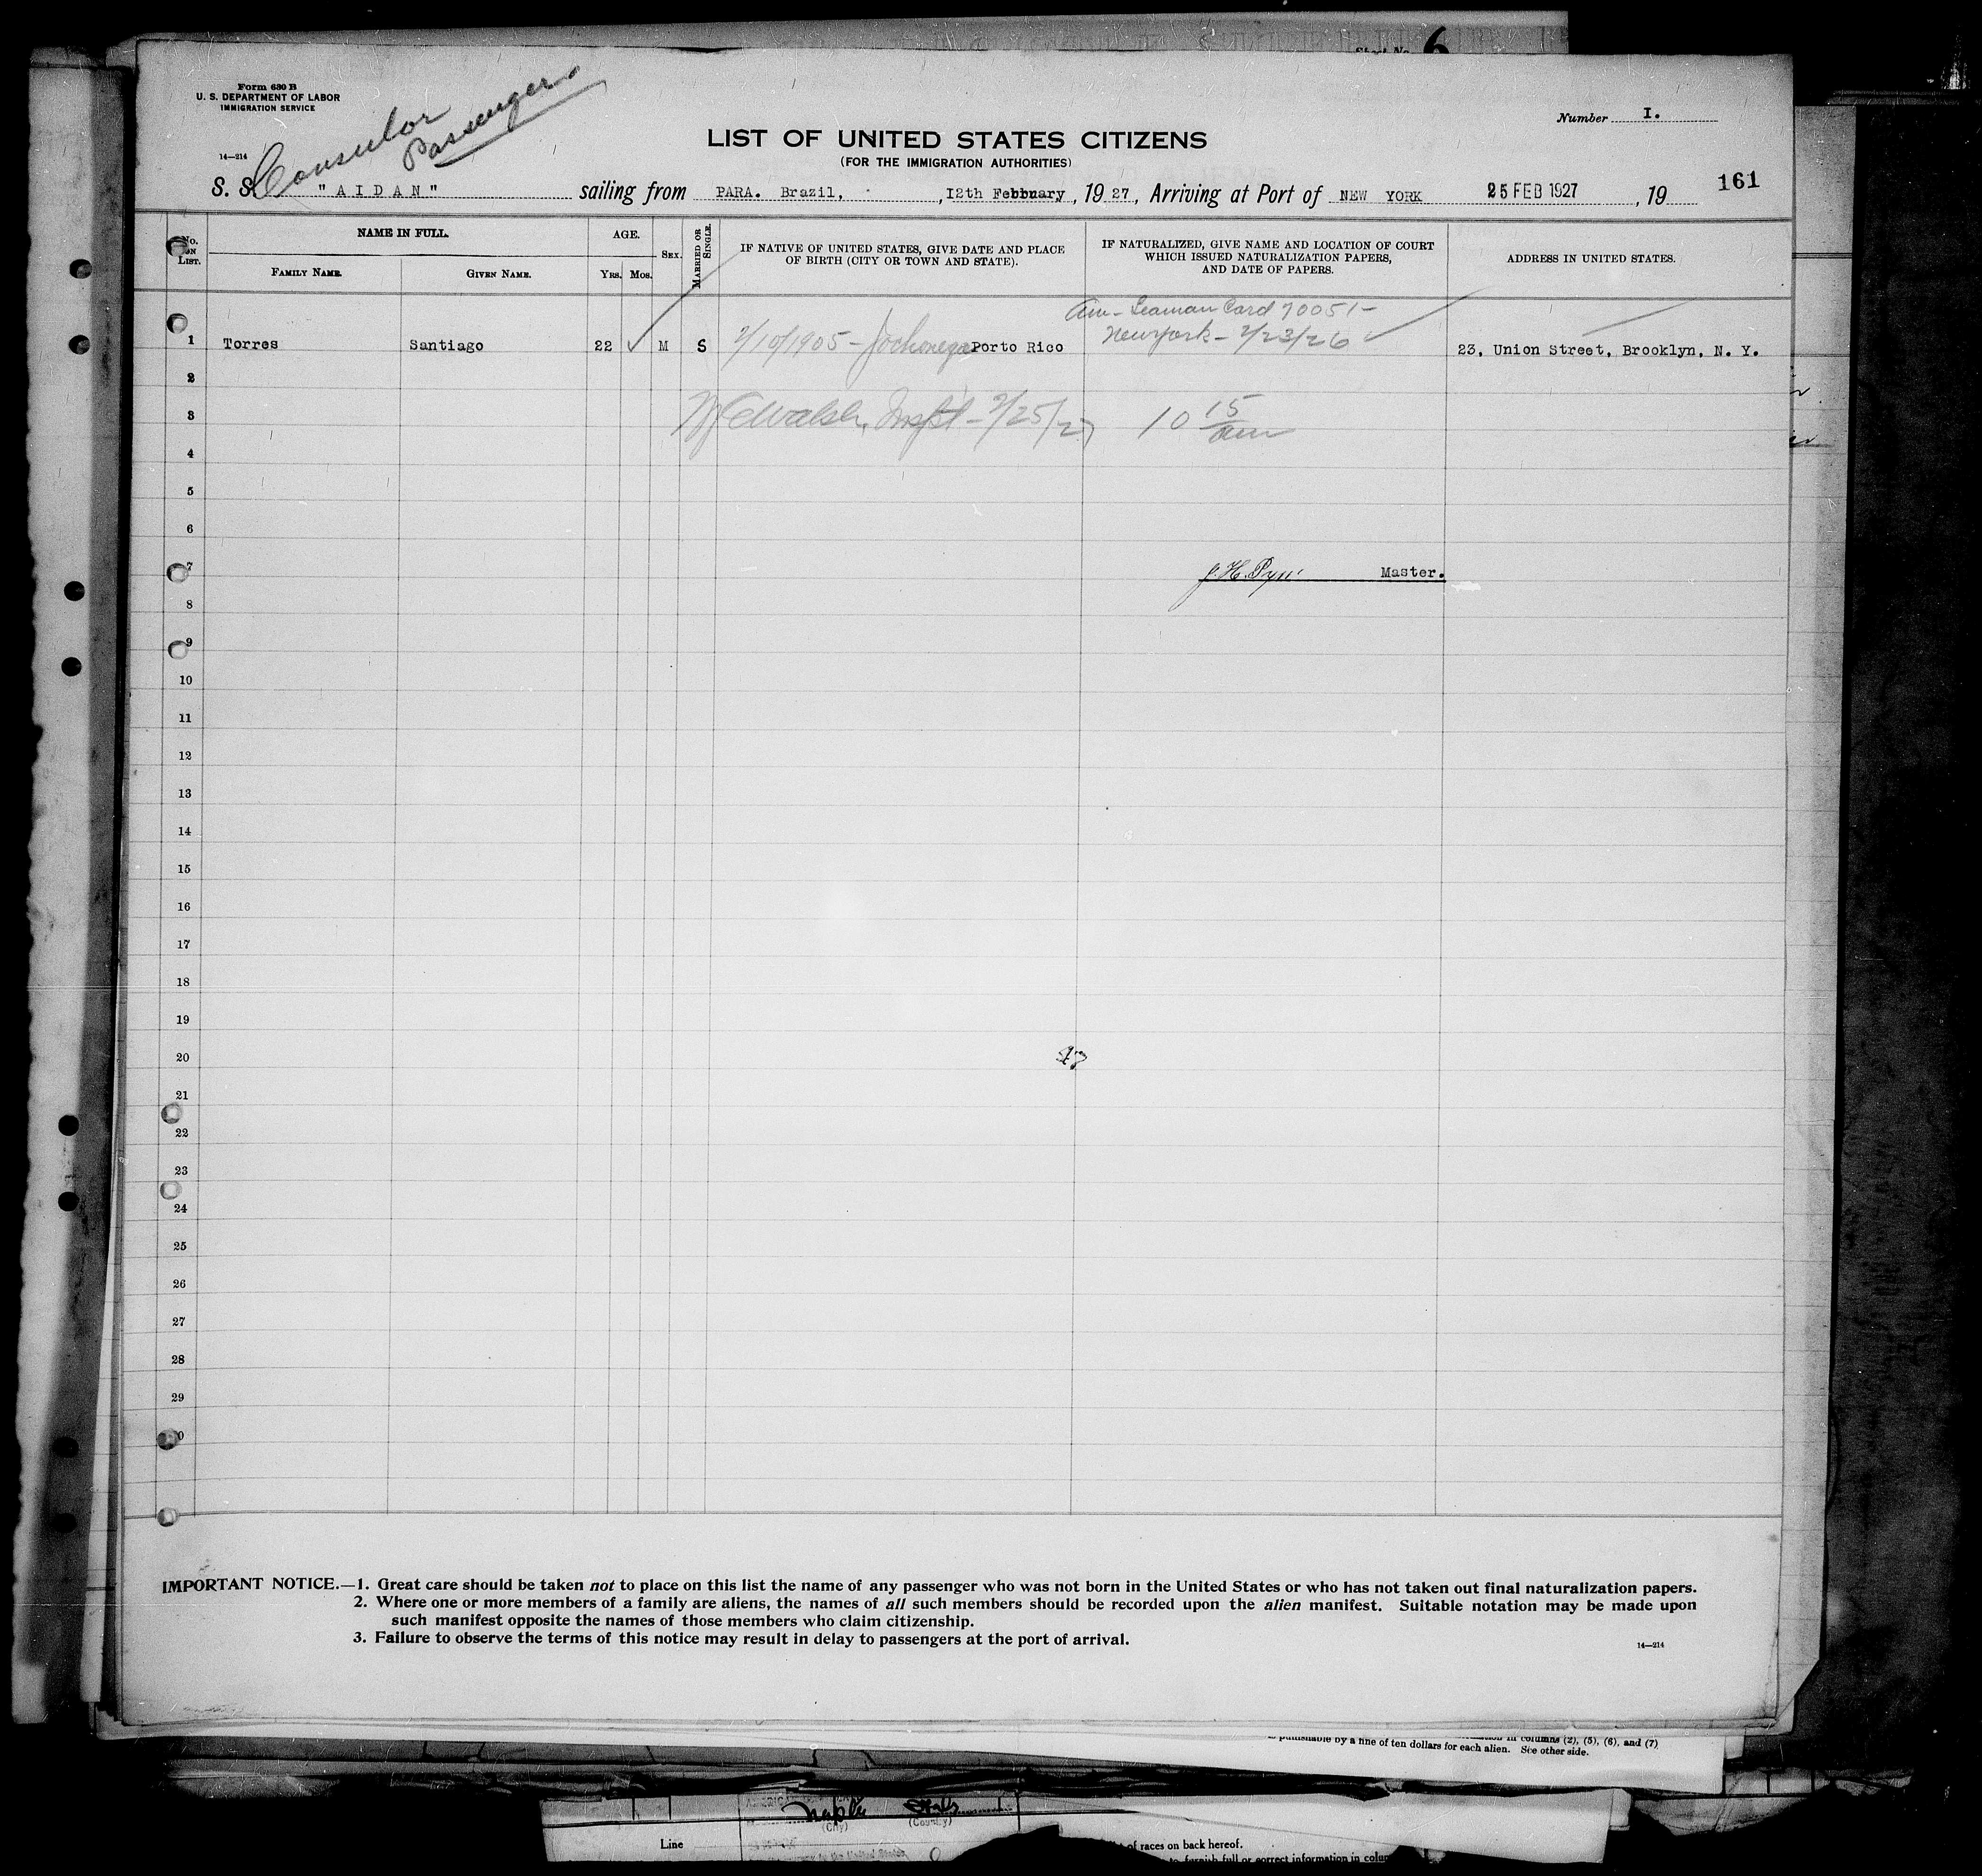 Sheet No. 6
Form 630 B
U. S. DEPARTMENT OF LABOR
IMMIGRATION SERVICE
Consular
Passenger
Number I.
14—214
LIST OF UNITED STATES CITIZENS
(FOR THE IMMIGRATION AUTHORITIES)
S. S. "AIDAN" sailing from PARA. Brazil, 12th February, 1927, Arriving at Port of NEW YORK 25 FEB 1927, 19 161
No. ON LIST.
NAME IN FULL.
FAMILY NAME. GIVEN NAME.
AGE.
YRS. MOS.
SEX.
MARRIED OR SINGLE.
IF NATIVE OF UNITED STATES, GIVE DATE AND PLACE
OF BIRTH (CITY OR TOWN AND STATE).
IF NATURALIZED, GIVE NAME AND LOCATION OF COURT
WHICH ISSUED NATURALIZATION PAPERS,
AND DATE OF PAPERS.
ADDRESS IN UNITED STATES.
Am - Seaman Card 70051 -
New York - 2/23/26
1 Torres Santiago 22 M S 2/10/1905 - Porto Rico 23, Union Street, Brooklyn, N. Y.
2
3 Walsh, Inspt - 2/25/27 10 15 am
4
5
6
7 J. H. Master.
8
9
10
11
12
13
14
15
16
17
18
19
20
21
22
23
24
25
26
27
28
29
IMPORTANT NOTICE.—1. Great care should be taken not to place on this list the name of any passenger who was not born in the United States or who has not taken out final naturalization papers.
2. Where one or more members of a family are aliens, the names of all such members should be recorded upon the alien manifest. Suitable notation may be made upon
such manifest opposite the names of those members who claim citizenship.
3. Failure to observe the terms of this notice may result in delay to passengers at the port of arrival.
14—214
in columns (2), (5), (6), and (7)
punishable by a fine of ten dollars for each alien. See other side.
(City) (Country)
Line
of races on back hereof.
to furnish full or correct information in